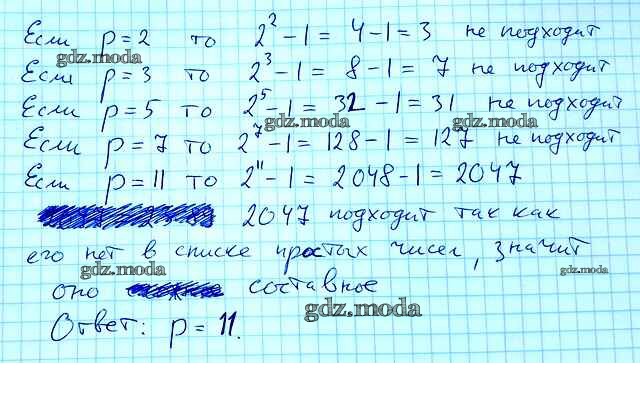 Если p = 2 то 2² - 1 = 4 - 1 = 3 не подходит
gdz.moda
Если p = 3 то 2³ - 1 = 8 - 1 = 7 не подходит
Если p = 5 то 2⁵ - 1 = 32 - 1 = 31 не подходит
gdz.moda gdz.moda
Если p = 7 то 2⁷ - 1 = 128 - 1 = 127 не подходит
Если p = 11 то 2¹¹ - 1 = 2048 - 1 = 2047
2047 подходит так как
его нет в списке простых чисел, значит
gdz.moda gdz.moda
оно составное
gdz.moda
Ответ: p = 11.